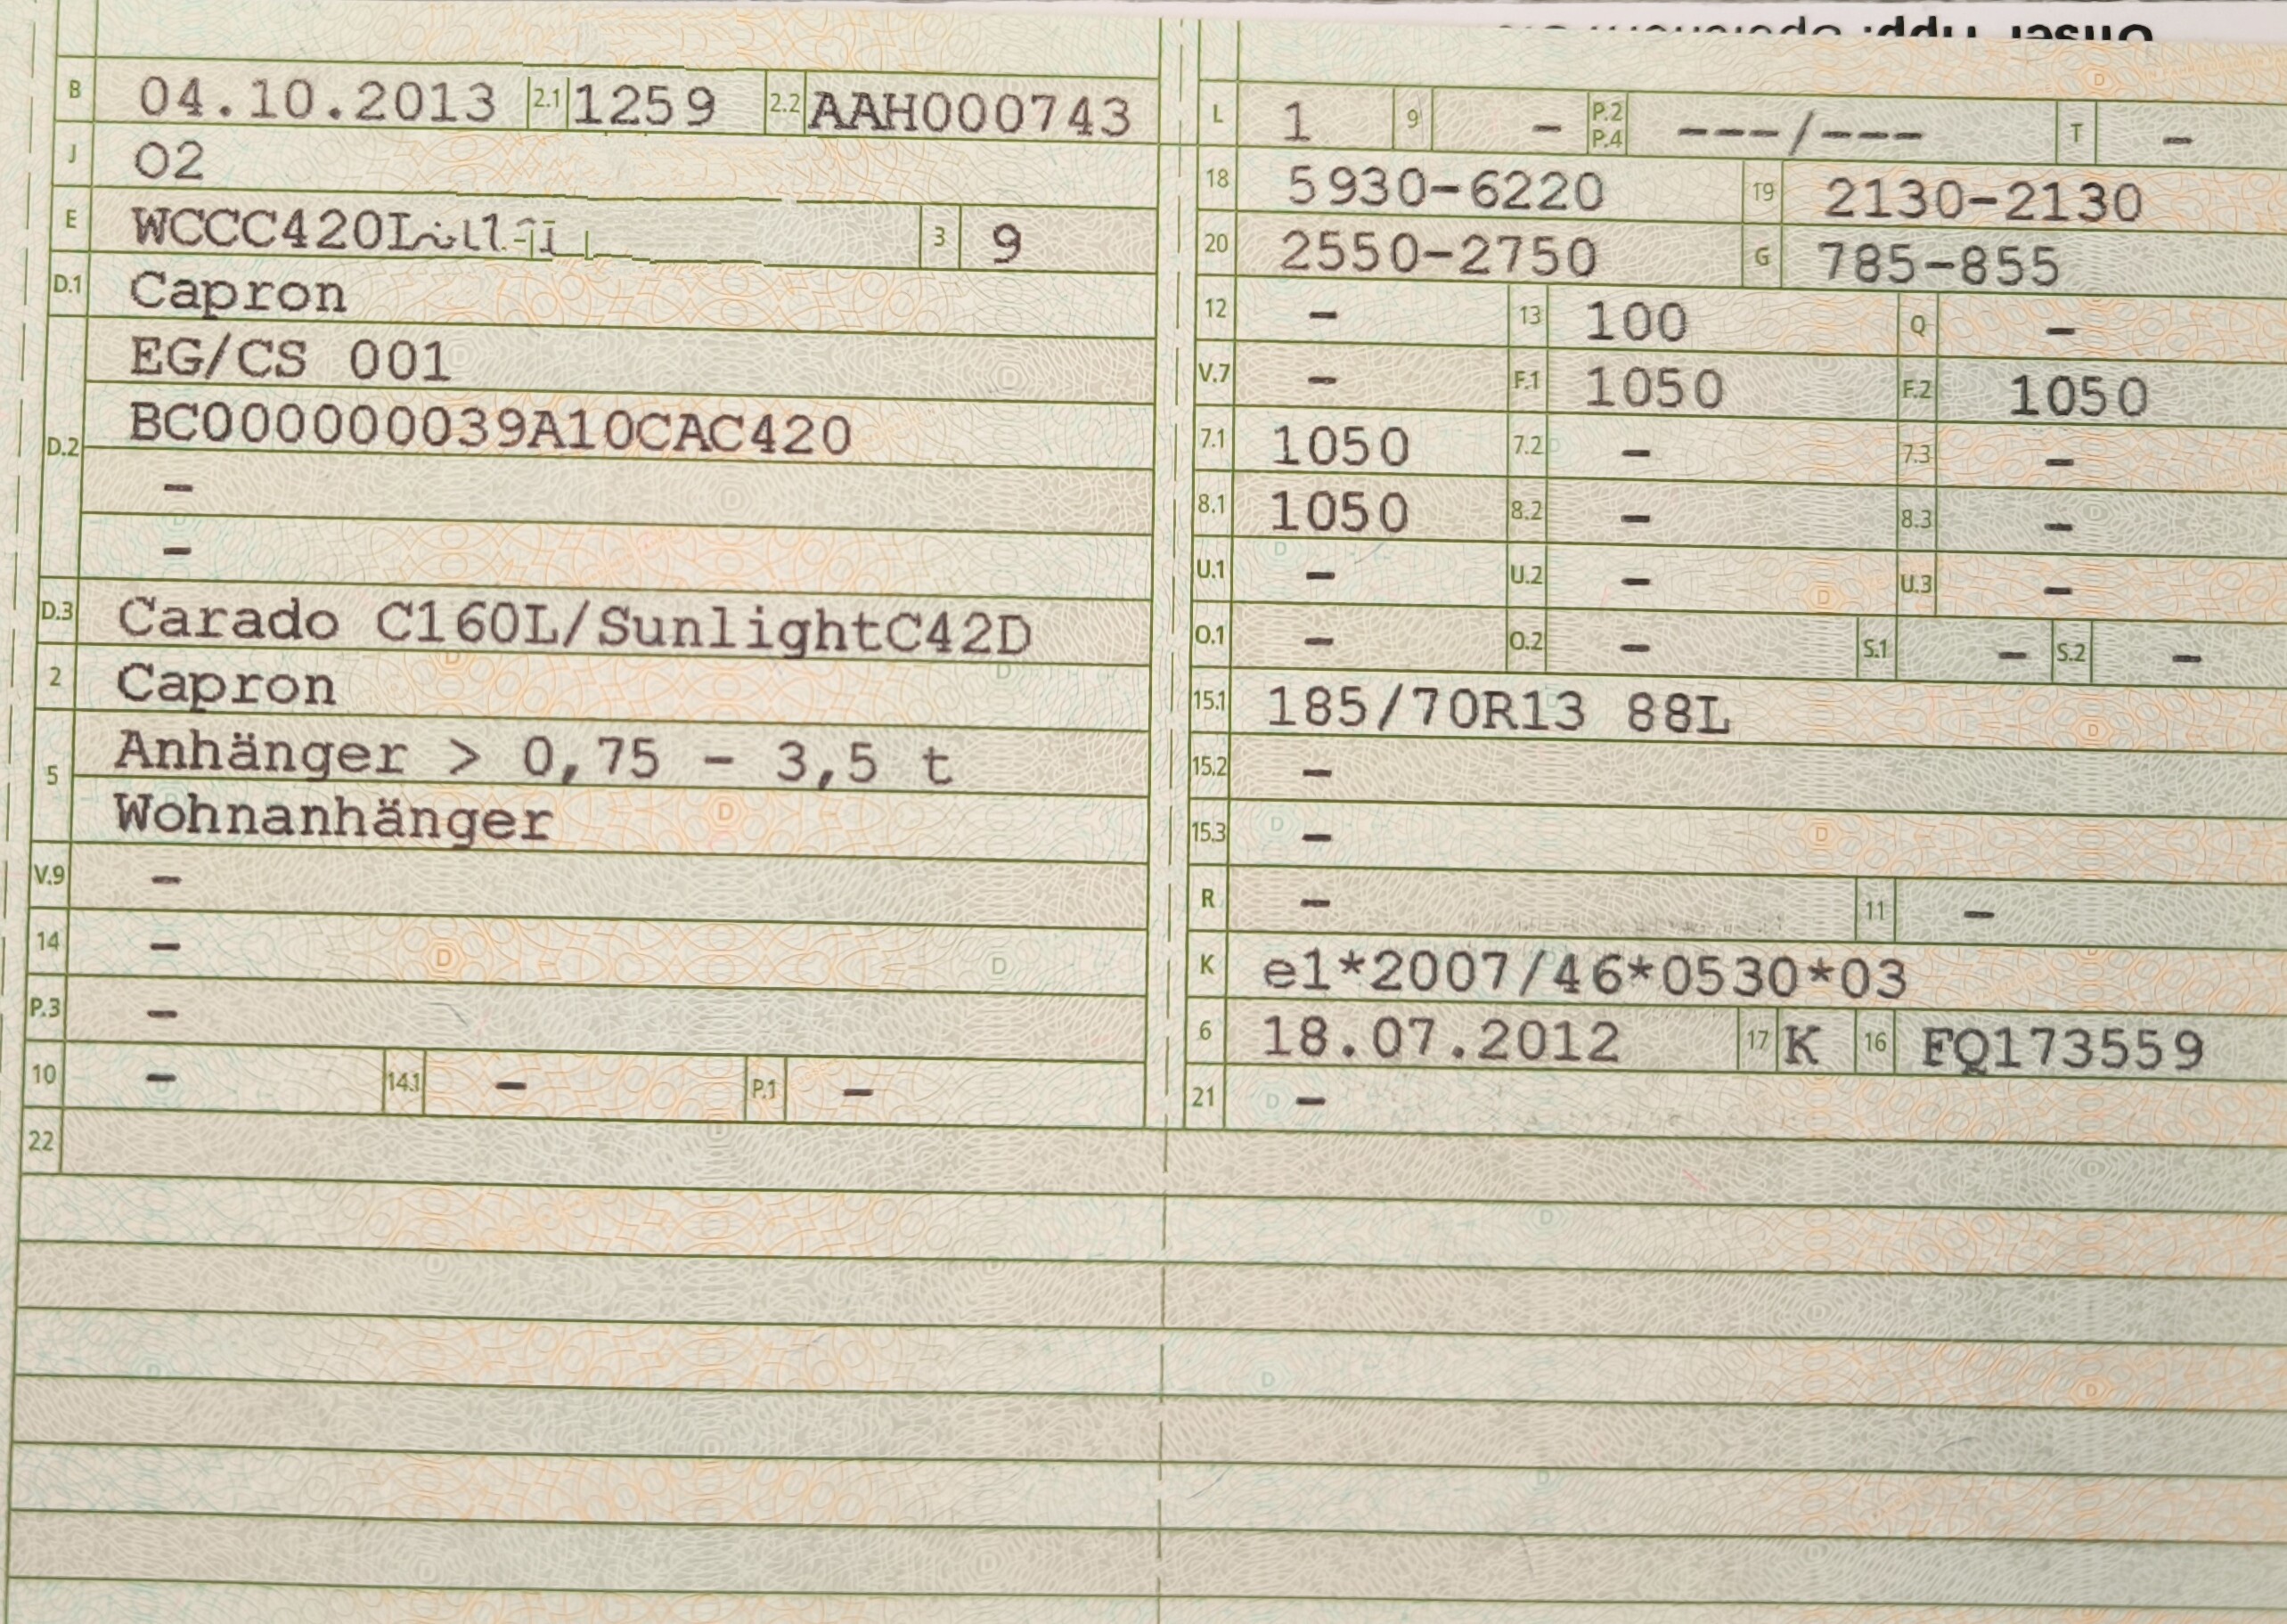 B 04.10.2013 2.1 1259 2.2 AAH000743
J O2
E 3 9
D.1 Capron
EG/CS 001
D.2 BC000000039A10CAC420
–
–
D.3 Carado C160L/SunlightC42D
2 Capron
5 Anhänger > 0,75 – 3,5 t
Wohnanhänger
V.9 –
14 –
P.3 –
10 – 14.1 – P.1 –
22
L 1 9 – P.2 P.4 ---/--- T –
18 5930–6220 19 2130–2130
20 2550–2750 G 785–855
12 – 13 100 Q –
V.7 – F.1 1050 F.2 1050
7.1 1050 7.2 – 7.3 –
8.1 1050 8.2 – 8.3 –
U.1 – U.2 – U.3 –
O.1 – O.2 – S.1 – S.2 –
15.1 185/70R13 88L
15.2 –
15.3 –
R – 11 –
K e1*2007/46*0530*03
6 18.07.2012 17 K 16 FQ173559
21 –